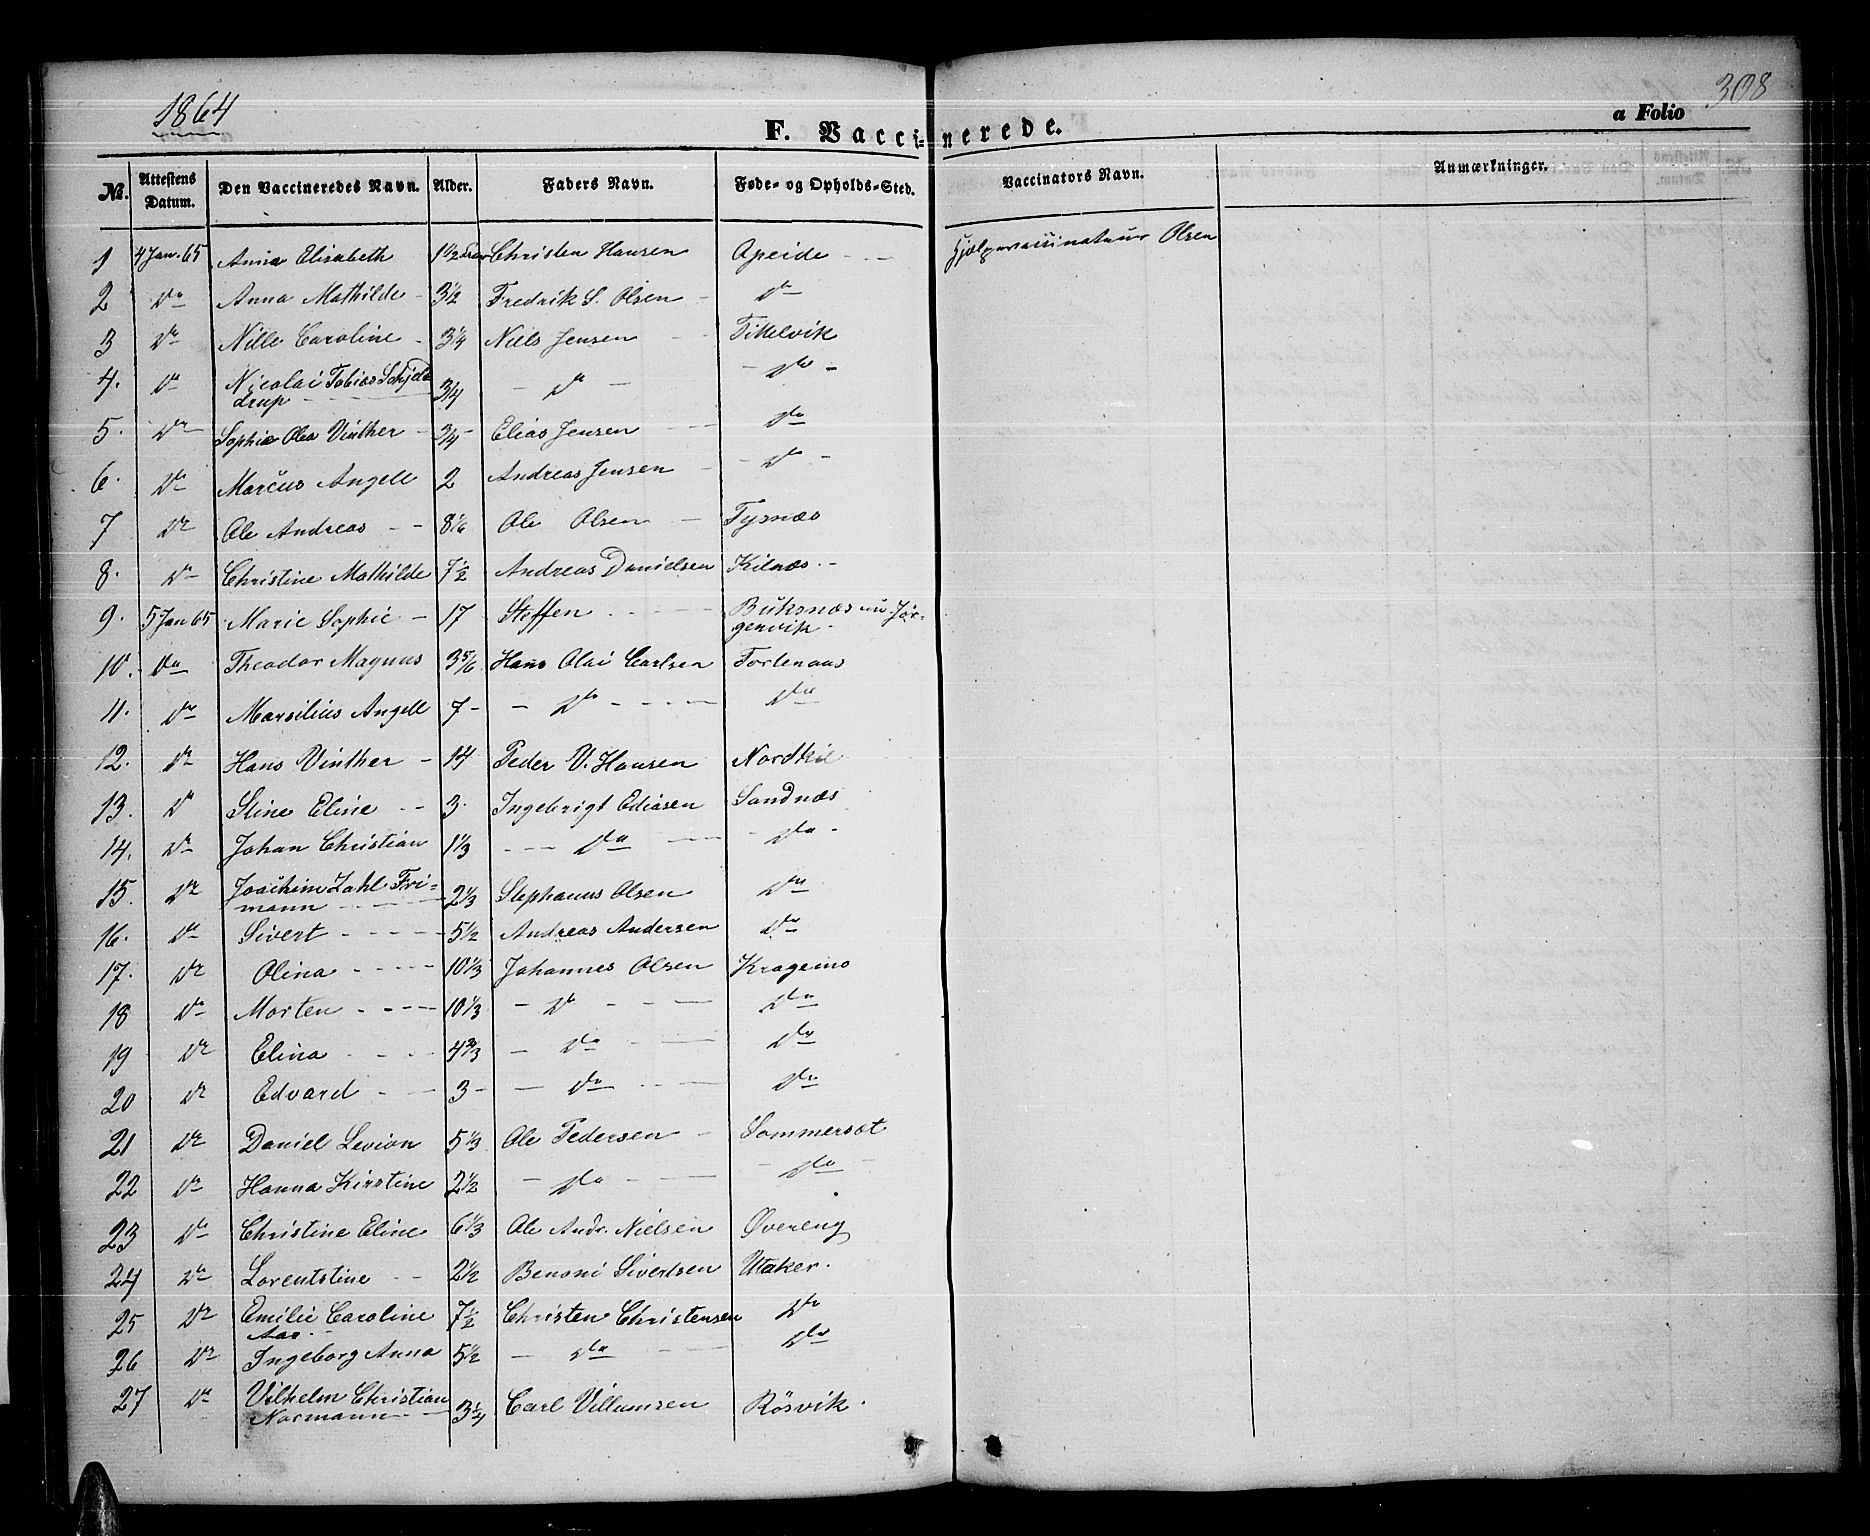 1864
308
a Folio
F. Vaccinerede.
Nr. Attestens Datum. Den Vaccineredes Navn. Alder. Faders Navn. Føde- og Opholds-Sted. Vaccinators Navn. Anmærkninger.
1 4 Jan. 65 Anna Elisabeth 1 1/2 Christen Hansen Apeide Hjælpevaccinateur Olsen
2 Do Anna Mathilde 3 1/2 Fredrik S. Olsen Do
3 Do Nille Caroline 3 1/4 Niels Jensen Tittelvik
4. Do Nicolai Tobias Schjeldrup 3/4 Do Do
5. Do Sophie Olea Vinther 3/4 Elias Jensen Do
6. Do Marcus Angell 2 Andreas Jensen Do
7 Do Ole Andreas 8 1/6 Ole Olsen Tysnæs
8. Do Christine Mathilde 7 1/2 Andreas Danielsen Kilnæs
9. 5 Jan 65 Marie Sophie 17 Steffen Buksnæs nu Jørgenvik
10. Do Theodor Magnus 3 5/6 Hans Olai Carlsen Fortenaas
11. Do Marsilius Angell 7 Do Do
12. Do Hans Vinther 14 Peder V. Hansen Nordkil
13. Do Stine Eline 3 Ingebrigt Ediasen Sandnæs
14. Do Johan Christian 1 1/3 Do Do
15. Do Joachim Zahl Frimann 2 1/3 Stephanus Olsen Do
16. Do Sivert 5 1/2 Andreas Andersen Do
17. Do Olina 10 1/3 Johannes Olsen Kragemo
18 Do Morten 10 1/3 Do Do
19 Do Elina 4 2/3 Do Do
20 Do Edvard 3 Do Do
21 Do Daniel Levion 5 1/3 Ole Pedersen Sommerset
22 Do Hanna Kirstine 2 1/2 Do Do
23 Do Christine Eline 6 1/3 Ole Andr. Nielsen Øvereng
24 Do Lorentstine 2 1/2 Benoni Sivertsen Utaker.
25 Do Emilie Caroline Aae. 7 1/2 Christen Christensen Do
26 Do Ingeborg Anna 5 1/2 Do Do
27 Do Vilhelm Christian Normann 3 1/4 Carl Villumsen Røsvik